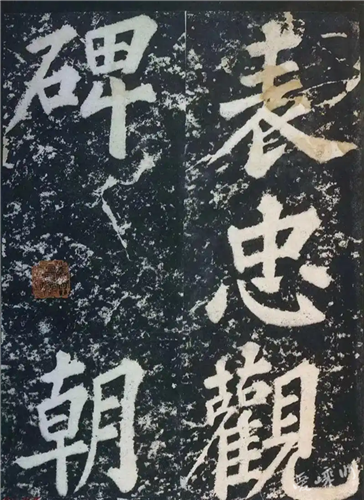 表忠觀
碑 朝